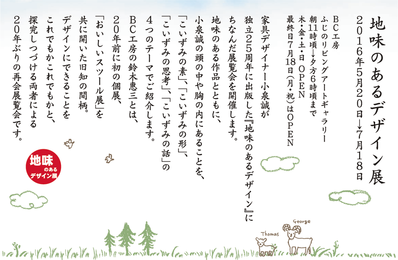 地味のあるデザイン展
2016年5月20日→7月18日
BC工房
ふじのリビングアートギャラリー
朝11時頃→夕方6時頃まで
木・金・土・日 OPEN
最終日7月18日(月・祝)はOPEN
家具デザイナー小泉誠が
独立25周年に出版した『地味のあるデザイン』に
ちなんだ展覧会を開催します。
地味のある作品とともに、
小泉誠の頭の中や胸の内にあることを、
「こいずみの素」、「こいずみの形」、
「こいずみの思考」、「こいずみの話」の
4つのテーマでご紹介します。
BC工房の鈴木恵三とは、
20年前に初の個展、
「おいしいスツール展」を
共に闘いた旧知の間柄。
デザインにできることを
これでもかこれでもかと、
探究しつづける両者による
20年ぶりの再会展覧会です。
地味
のある
デザイン展
Thomas
George